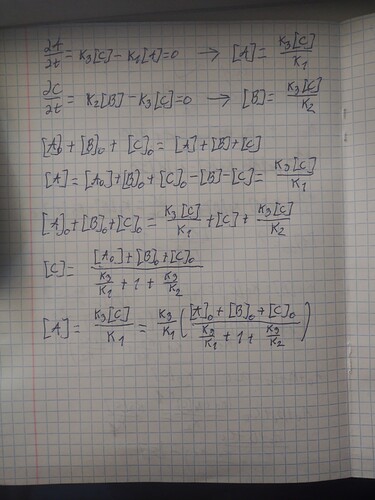 ∂A/∂t = K₃[C] − K₁[A] = 0 → [A] = K₃[C]/K₁
∂C/∂t = K₂[B] − K₃[C] = 0 → [B] = K₃[C]/K₂
[A]₀ + [B]₀ + [C]₀ = [A] + [B] + [C]
[A] = [A₀] + [B]₀ + [C]₀ − [B] − [C] = K₃[C]/K₁
[A]₀ + [B]₀ + [C]₀ = K₃[C]/K₁ + [C] + K₃[C]/K₂
[C] = ([A₀] + [B]₀ + [C]₀)/(K₃/K₁ + 1 + K₃/K₂)
[A] = K₃[C]/K₁ = K₃/K₁ (([A]₀ + [B]₀ + [C]₀)/(K₃/K₁ + 1 + K₃/K₂))